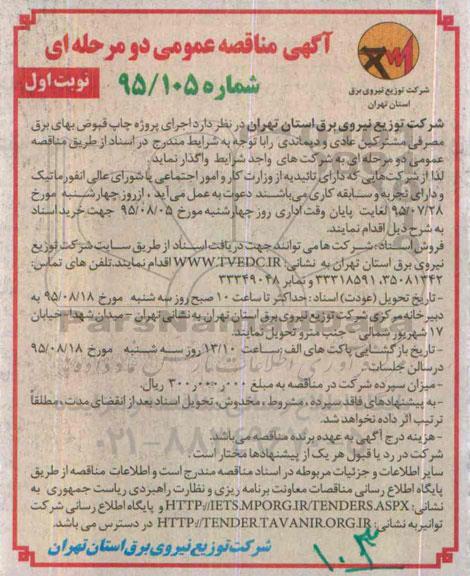 آگهی مناقصه عمومی دو مرحله ای
شماره ۹۵/۱۰۵
نوبت اول
شرکت توزیع نیروی برق
استان تهران
شرکت توزیع نیروی برق استان تهران در نظر دارد اجرای پروژه چاپ قبوض بهای برق
مصرفی مشترکین عادی و دیماندی را با توجه به شرایط مندرج در اسناد از طریق مناقصه
عمومی دو مرحله ای به شرکت های واجد شرایط واگذار نماید.
از شرکت‌هایی که دارای تائیدیه از وزارت کار و امور اجتماعی یا شورای عالی انفورماتیک
و دارای تجربه و سابقه کاری می‌باشند دعوت به عمل می‌آید، از روز چهارشنبه مورخ
۹۵/۰۷/۲۸ لغایت پایان وقت اداری روز چهارشنبه مورخ ۹۵/۰۸/۰۵ جهت خرید اسناد
به شرح ذیل اقدام نمایند.
فروش اسناد: شرکت ها می توانند جهت دریافت اسناد از طریق سایت شرکت توزیع
نیروی برق استان تهران به نشانی: WWW.TVEDC.IR اقدام نمایند. تلفن های تماس:
۳۵۰۸۱۳۴۲، ۳۳۳۱۸۵۹۱ و نمابر ۳۳۳۴۹۰۴۸
- تاریخ تحویل (عودت) اسناد: حداکثر تا ساعت ۱۰ صبح روز سه شنبه مورخ ۹۵/۰۸/۱۸ به
دبیرخانه مرکزی شرکت توزیع نیروی برق استان تهران به نشانی تهران – میدان شهدا- خیابان
۱۷ شهریور شمالی – جنب مترو تحویل نمایند.
- تاریخ بازگشایی پاکت های الف: ساعت ۱۳/۱۰ روز سه شنبه مورخ ۹۵/۰۸/۱۸
در سالن جلسات.
- میزان سپرده شرکت در مناقصه به مبلغ ۳۰۰,۰۰۰,۰۰۰ ریال.
- به پیشنهادهای فاقد سپرده، مشروط، مخدوش، تحویل اسناد بعد از انقضای مدت، مطلقاً
ترتیب اثر داده نخواهد شد.
- هزینه درج آگهی به عهده برنده مناقصه می‌باشد.
شرکت در رد یا قبول هر یک از پیشنهادها مختار است.
سایر اطلاعات و جزئیات مربوطه در اسناد مناقصه مندرج است و اطلاعات مناقصه از طریق
پایگاه اطلاع رسانی مناقصات معاونت برنامه ریزی و نظارت راهبردی ریاست جمهوری به
نشانی: HTTP://IETS.MPORG.IR/TENDERS.ASPX و پایگاه اطلاع رسانی شرکت
توانیر به نشانی: HTTP://TENDER.TAVANIR.ORG.IR در دسترس می باشد.
شرکت توزیع نیروی برق استان تهران